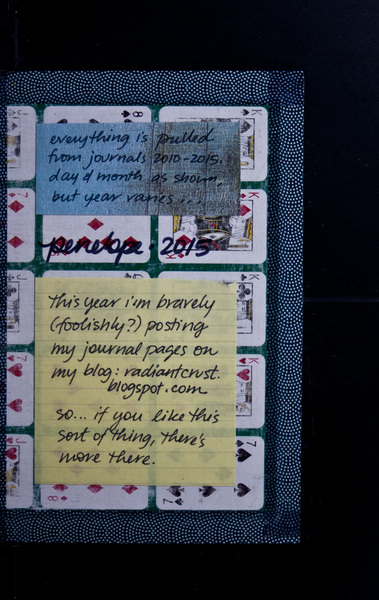 everything is pulled
from journals 2010-2015.
day & month as shown,
but year varies...
penelope. 2015
This year i'm bravely
(foolishly?) posting
my journal pages on
my blog: radiantcrust.
blogspot.com
so... if you like this
sort of thing, there's
more there.
J
8
K
K
7
7
J
8
7
7